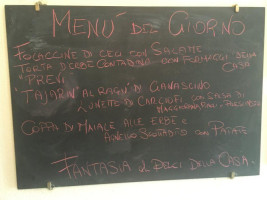 MENÙ DEL GIORNO
FOCACCINE DI CECI CON SALAME
TORTA D'ERBE CONTADINA CON FORMAGGI DELLA
CASA
"PREVI
TAJARIN AL RAGÙ DI GUANCINO
LUNETTE DI CARCIOFI CON SALSA DI
COPPA DI MAIALE ALLE ERBE e
AGNELLO CON PATATE
FANTASIA di DOLCI DELLA CASA